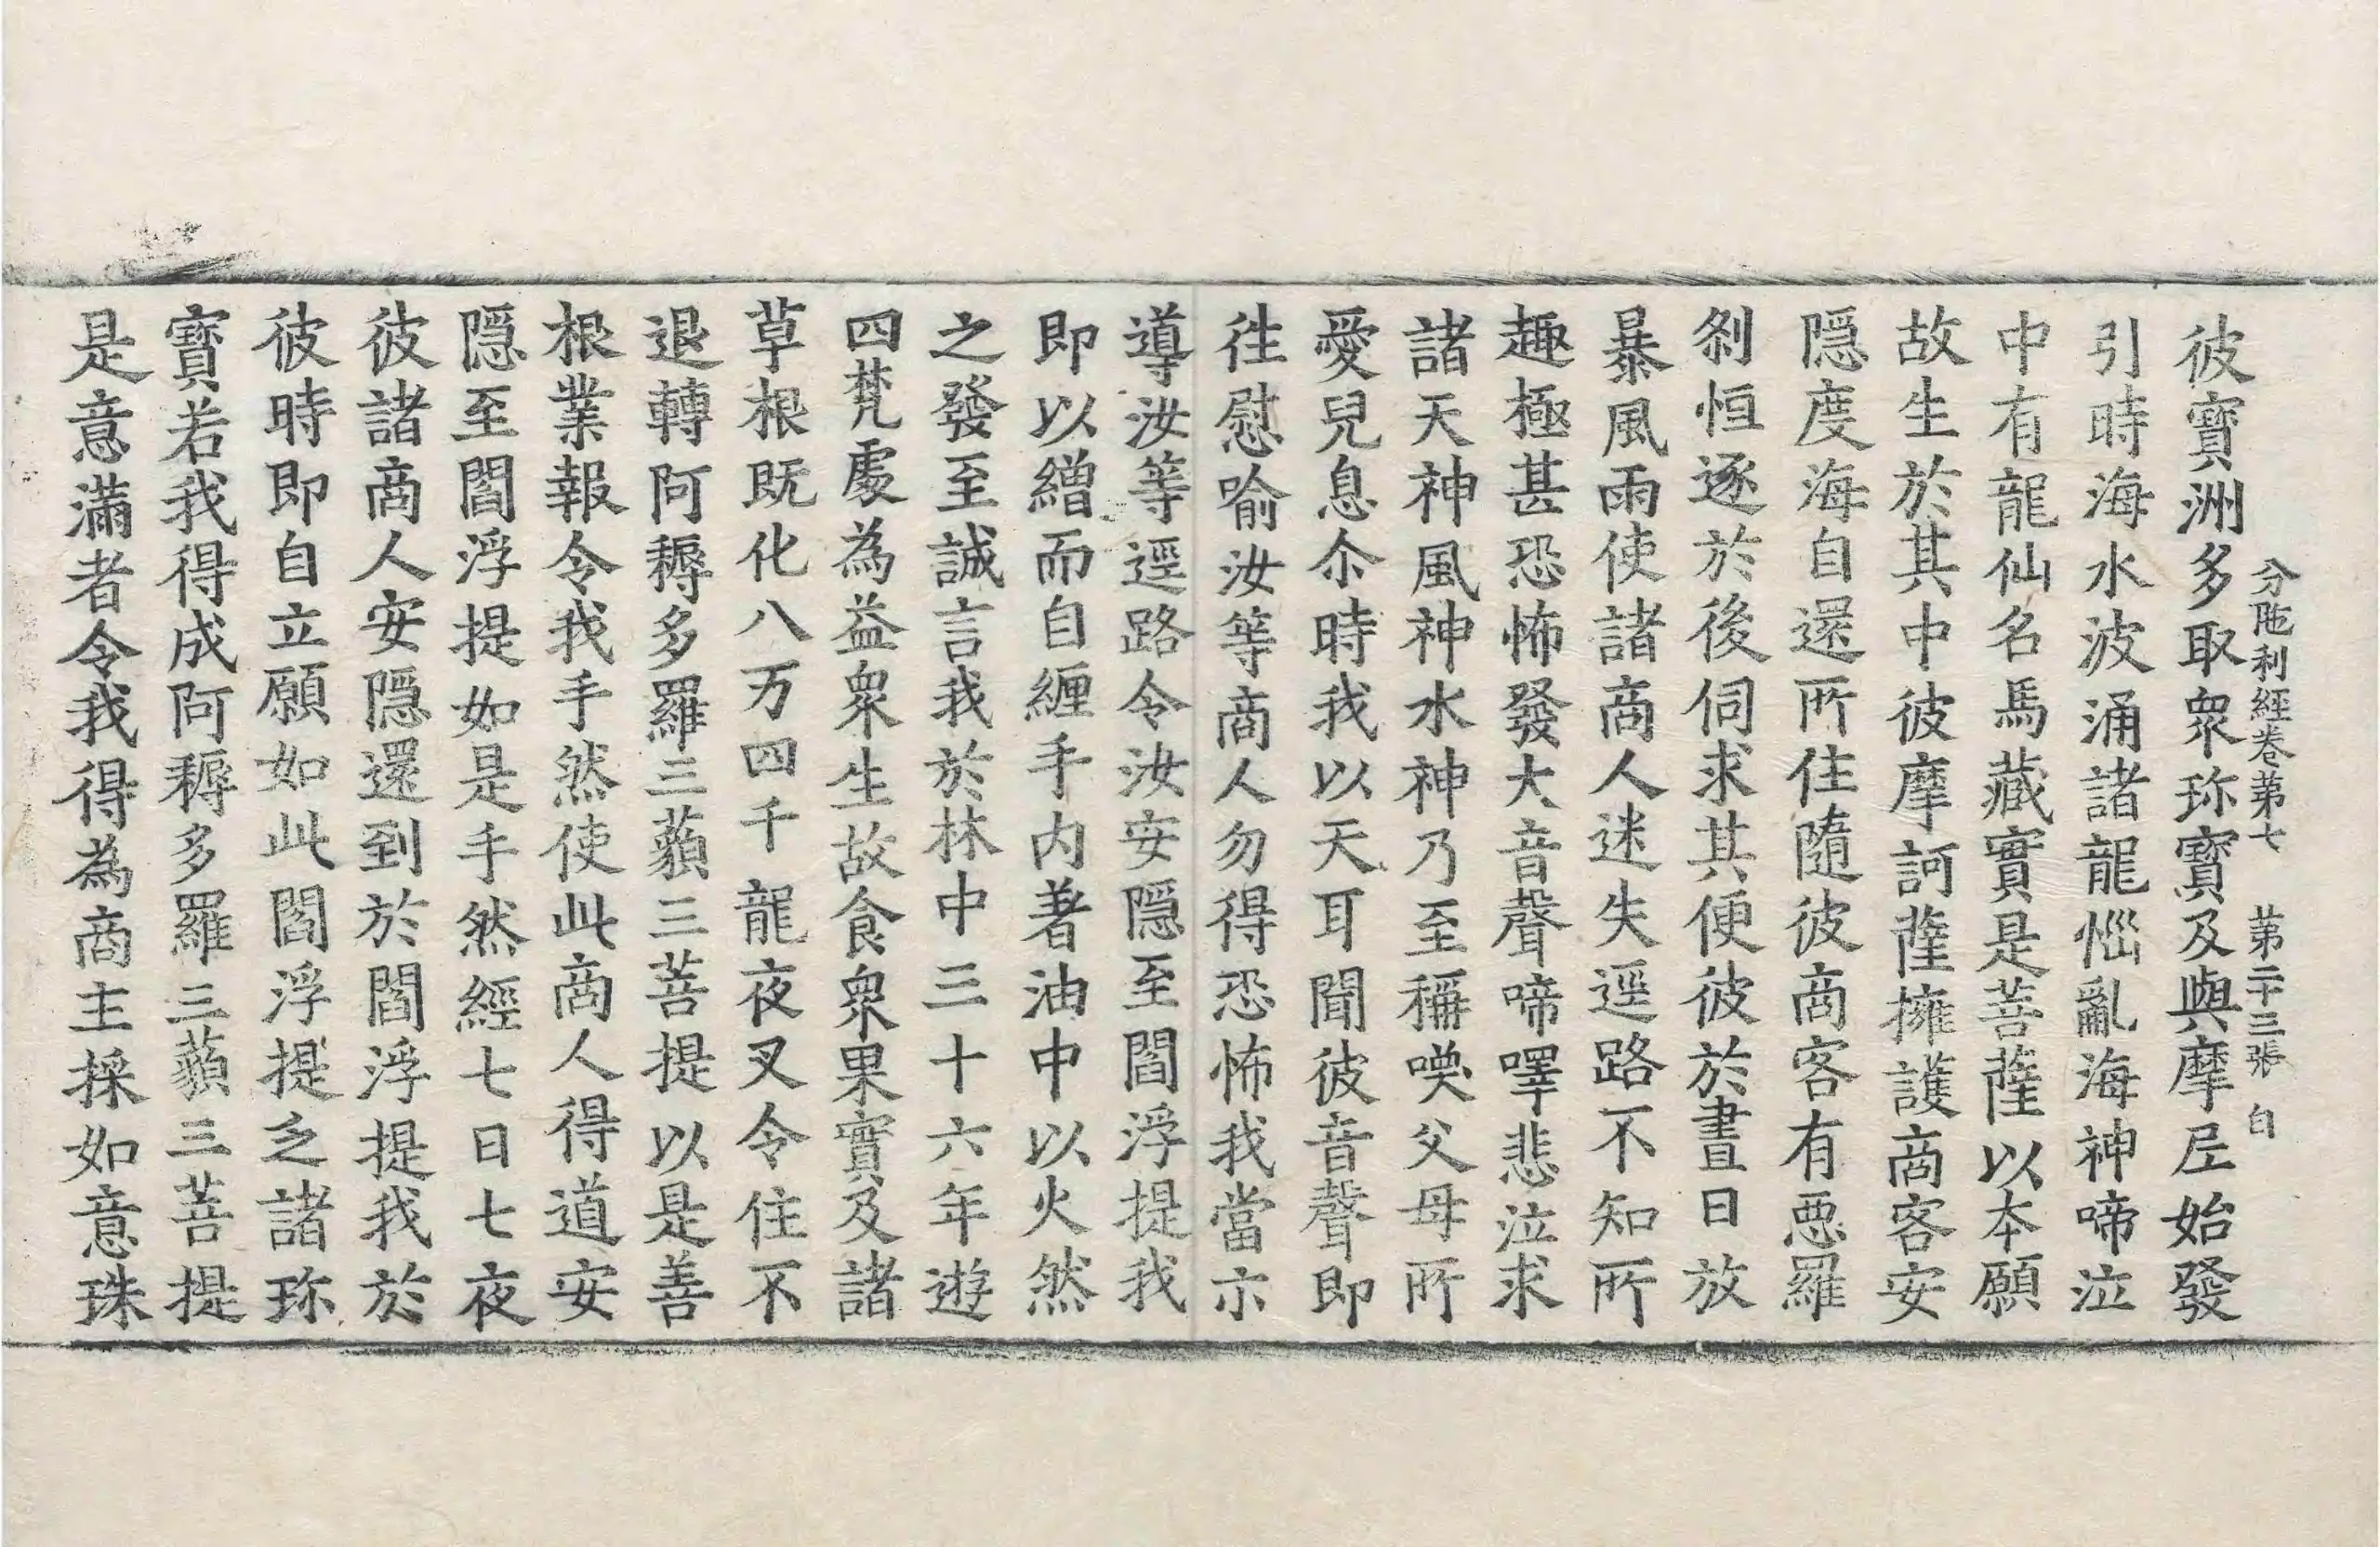 分陁利經卷第七　第二十三張　白
彼寳洲多取衆珎寳及與摩𡰱始發
引時海水波涌諸龍惱亂海神啼泣
中有龍仙名馬藏實是菩薩以本願
故生於其中彼摩訶薩擁護商客安
隱度海自還所住隨彼商客有惡羅
刹恒逐於後伺求其便彼於晝日放
暴風雨使諸商人迷失逕路不知所
趣極甚恐怖發大音聲啼㘁悲泣求
諸天神風神水神乃至稱喚父母所
愛兒息尒時我以天耳聞彼音聲即
徃慰喻汝等商人勿得恐怖我當示
導汝等逕路令汝安隱至閻浮提我
即以繒而自纏手内著油中以火然
之發至誠言我於林中三十六年遊
四梵處為益衆生故食衆果實及諸
草根既化八万四千龍夜叉令住不
退轉阿耨多羅三藐三菩提以是善
根業報令我手然使此商人得道安
隱至閻浮提如是手然經七日七夜
彼諸商人安隱還到於閻浮提我於
彼時即自立願如此閻浮提乏諸珎
寳若我得成阿耨多羅三藐三菩提
是意滿者令我得為商主採如意珠